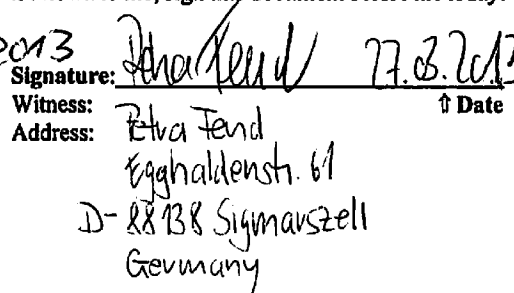 2013
Signature: Petra Fend
⇑ Date
Witness:
Address: Petra Fend
Egghaldenstr. 61
D-88138 Sigmarszell
Germany